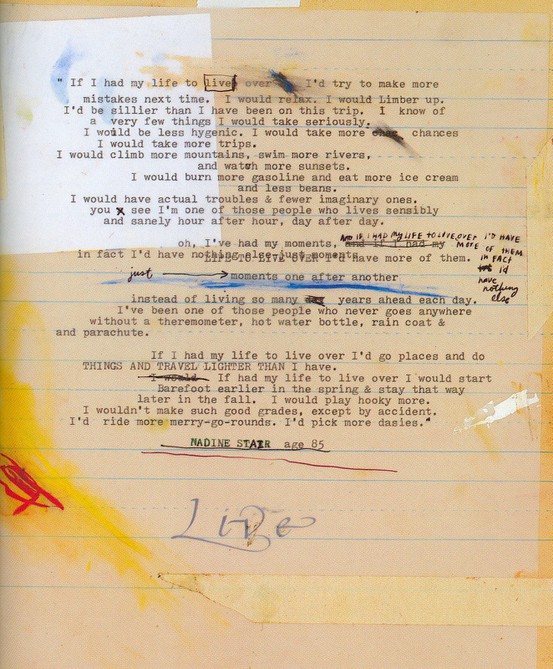 " If I had my life to live over I'd try to make more
mistakes next time. I would relax. I would Limber up.
I'd be sillier than I have been on this trip. I know of
a very few things I would take seriously.
I would be less hygenic. I would take more chances
I would take more trips.
I would climb more mountains, swim more rivers,
and watch more sunsets.
I would burn more gasoline and eat more ice cream
and less beans.
I would have actual troubles & fewer imaginary ones.
you see I'm one of those people who lives sensibly
and sanely hour after hour, day after day.
AND IF I HAD MY LIFE TO LIVE OVER I'D HAVE
oh, I've had my moments, and if I had my MORE OF THEM.
LIFE TO LIVE OVER I'd have more of them. IN FACT
in fact I'd have nothing else just moments I'd
have
nothing
else
just moments one after another
instead of living so many years ahead each day.
I've been one of those people who never goes anywhere
without a theremometer, hot water bottle, rain coat &
and parachute.
If I had my life to live over I'd go places and do
THINGS AND TRAVEL LIGHTER THAN I have.
I would If had my life to live over I would start
Barefoot earlier in the spring & stay that way
later in the fall. I would play hooky more.
I wouldn't make such good grades, except by accident.
I'd ride more merry-go-rounds. I'd pick more dasies."
NADINE STAIR age 85
Live